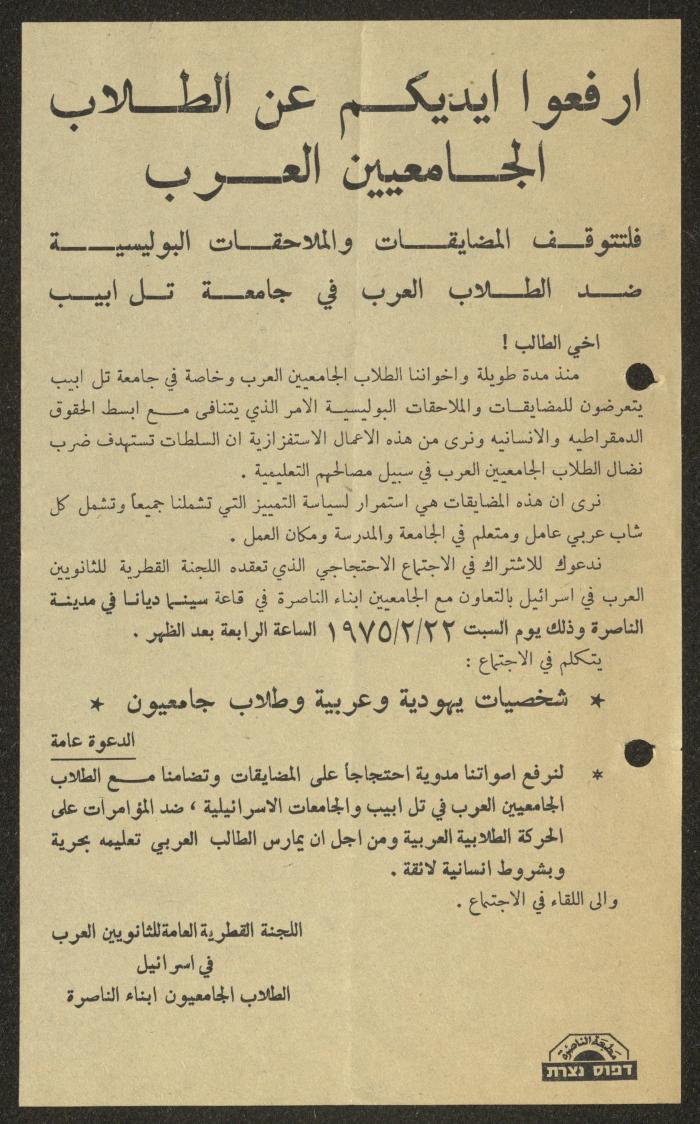 ارفعوا ايديكم عن الطلاب
الجامعيين العرب
فلتتوقف المضايقات والملاحقات البوليسية
ضد الطلاب العرب في جامعة تل ابيب
اخي الطالب !
منذ مدة طويلة واخواننا الطلاب الجامعيين العرب وخاصة في جامعة تل ابيب
يتعرضون للمضايقات والملاحقات البوليسية الامر الذي يتنافى مع ابسط الحقوق
الدمقراطيه والانسانيه ونرى من هذه الاعمال الاستفزازية ان السلطات تستهدف ضرب
نضال الطلاب الجامعيين العرب في سبيل مصالحهم التعليمية .
نرى ان هذه المضايقات هي استمرار لسياسة التمييز التي تشملنا جميعاً وتشمل كل
شاب عربي عامل ومتعلم في الجامعة والمدرسة ومكان العمل .
ندعوك للاشتراك في الاجتماع الاحتجاجي الذي تعقده اللجنة القطرية للثانويين
العرب في اسرائيل بالتعاون مع الجامعيين ابناء الناصرة في قاعة سينما ديانا في مدينة
الناصرة وذلك يوم السبت ١٩٧٥/٢/٢٢ الساعة الرابعة بعد الظهر .
يتكلم في الاجتماع :
* شخصيات يهودية وعربية وطلاب جامعيون *
الدعوة عامة
* لنرفع اصواتنا مدوية احتجاجاً على المضايقات وتضامنا مع الطلاب
الجامعيين العرب في تل ابيب والجامعات الاسرائيلية ، ضد المؤامرات على
الحركة الطلابية العربية ومن اجل ان يمارس الطالب العربي تعليمه بحرية
وبشروط انسانية لائقة .
والى اللقاء في الاجتماع .
اللجنة القطرية العامة للثانويين العرب
في اسرائيل
الطلاب الجامعيون ابناء الناصرة
مطبعة الناصرة
דפוס נצרת